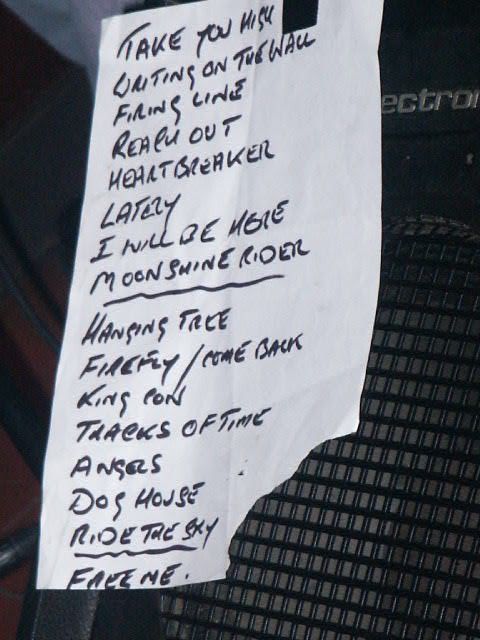 TAKE YOU HIGH
WRITING ON THE WALL
FIRING LINE
REACH OUT
HEARTBREAKER
LATELY
I WILL BE HERE
MOONSHINE RIDER
HANGING TREE
FIREFLY / COME BACK
KING CON
TRACKS OF TIME
ANGELS
DOG HOUSE
RIDE THE SKY
FREE ME.
ectro